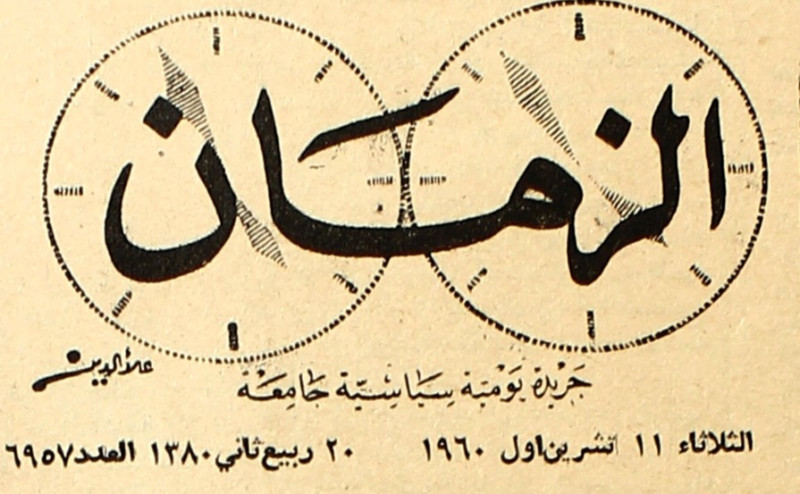 الزمان
علاءالدين
جريدة يومية سياسية جامعة
الثلاثاء ١١ تشرين اول ١٩٦٠ ٢٠ ربيع ثاني ١٣٨٠ العدد ٦٩٥٧